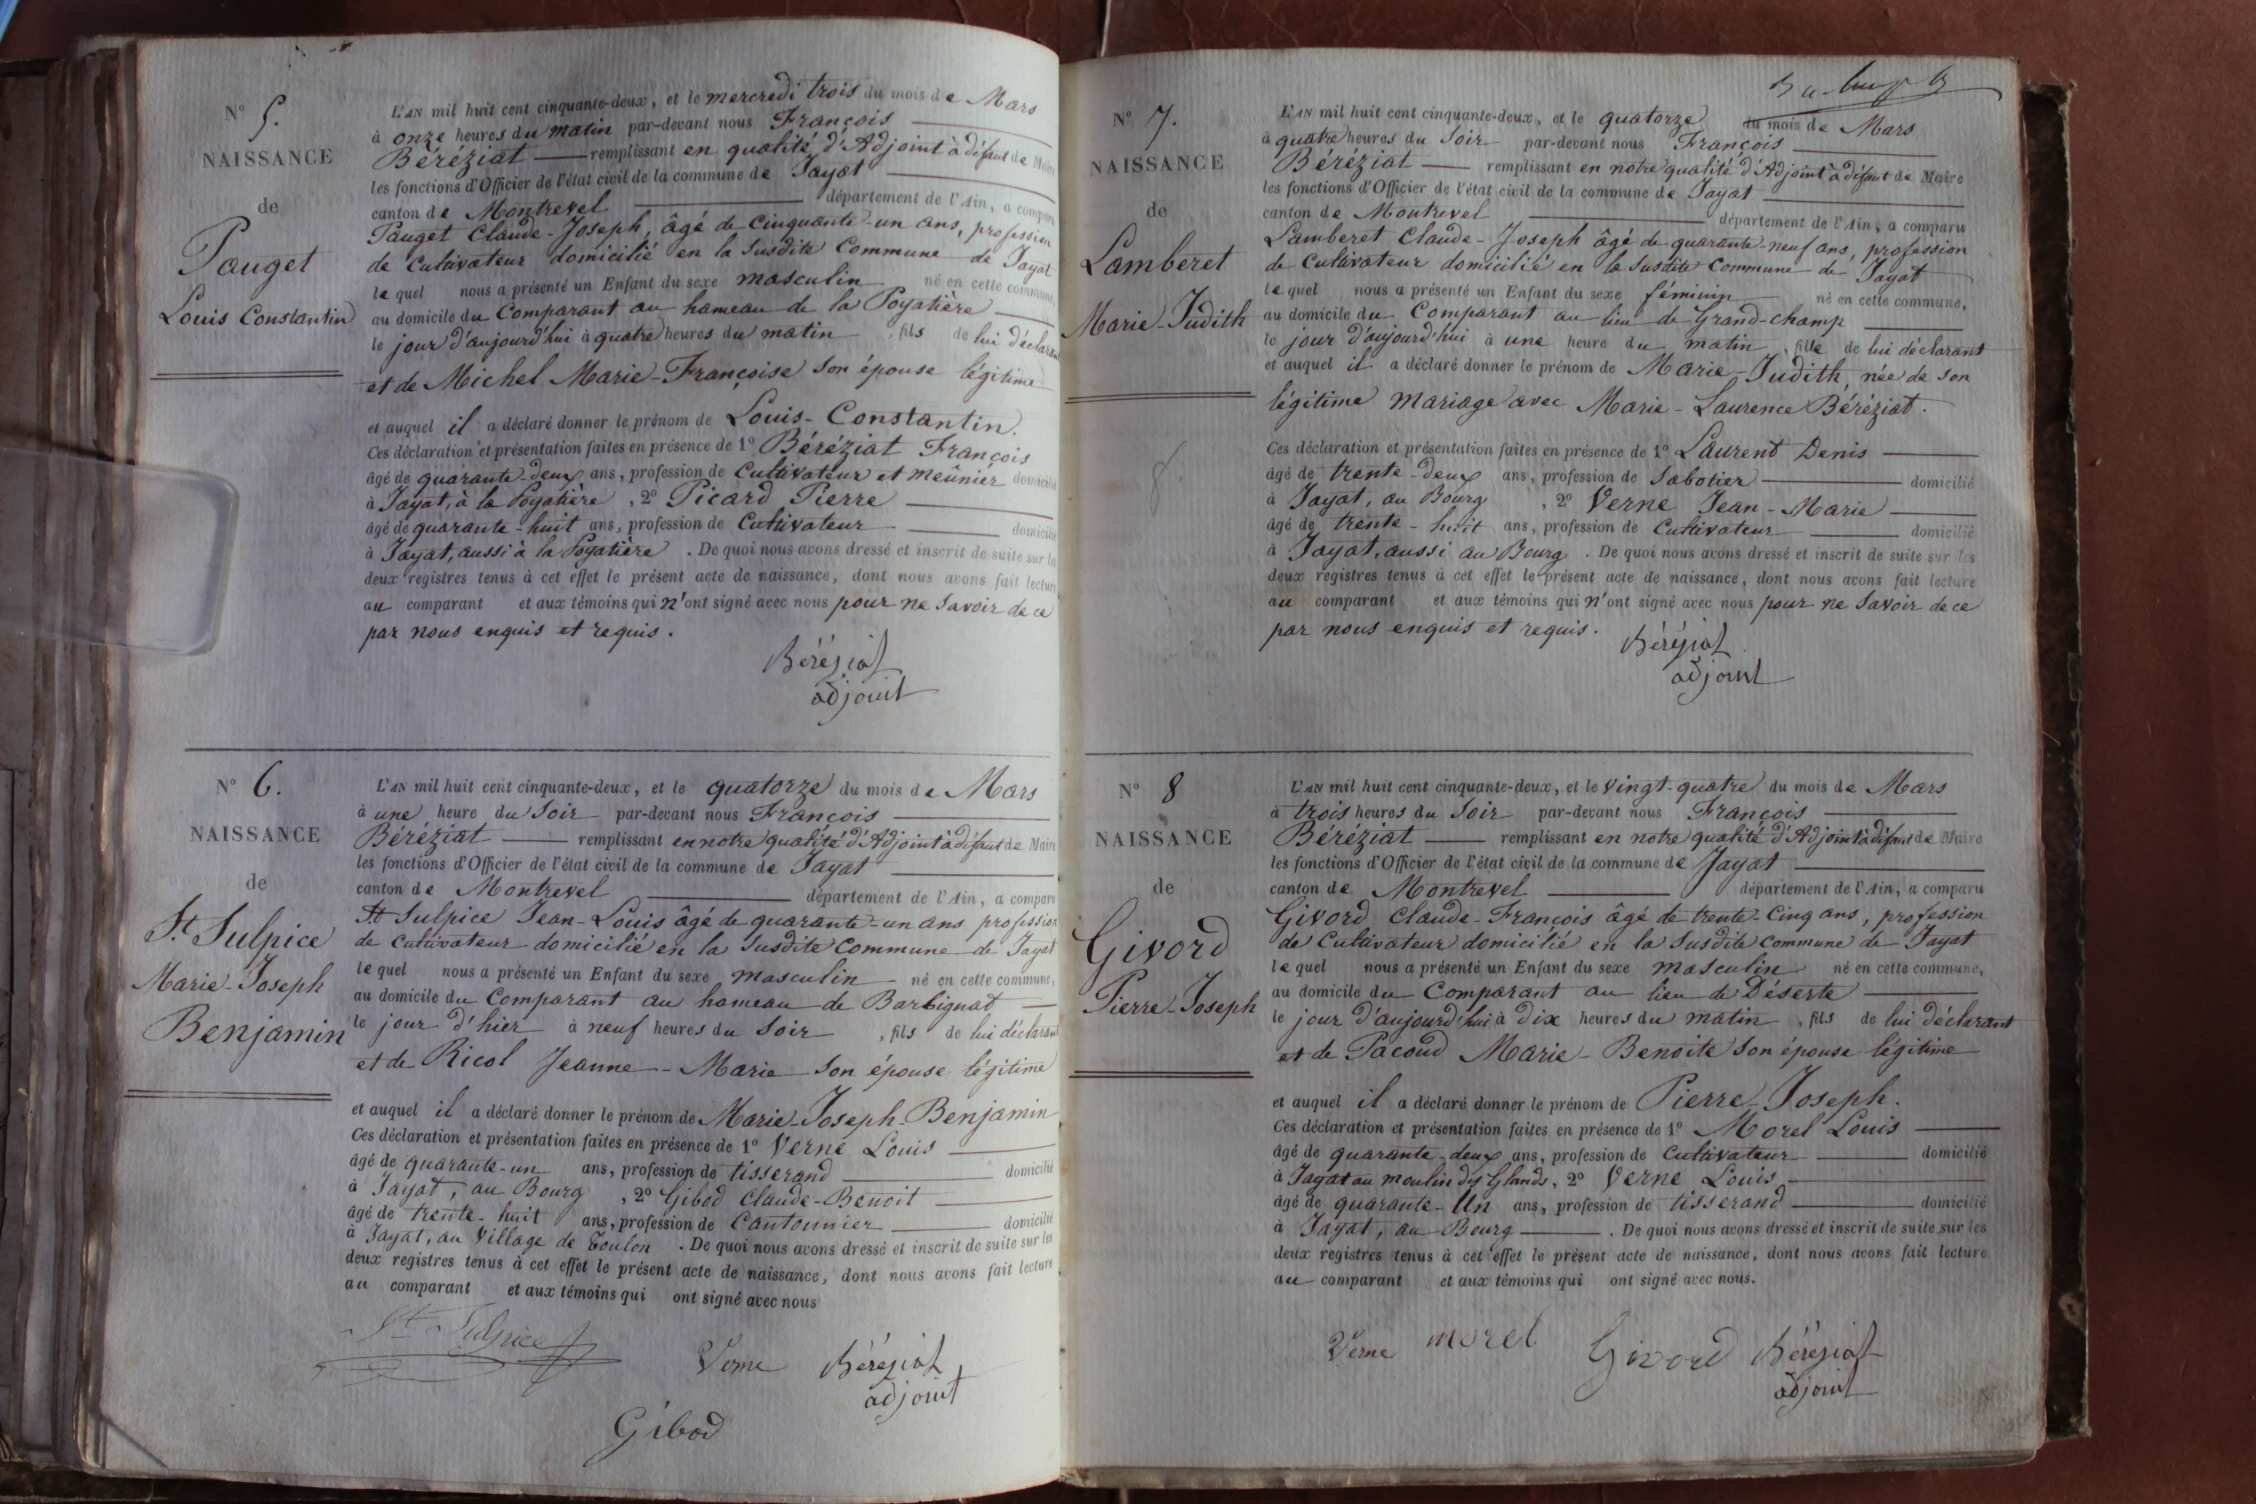 N° 5.
NAISSANCE
de
Pauget
Louis Constantin
L'AN mil huit cent cinquante-deux, et le mercredi trois du mois de Mars
à onze heures du matin par-devant nous François
Béréziat remplissant en qualité d'Adjoint à défaut de Maire
les fonctions d'Officier de l'état civil de la commune de Jayat
canton de Montrevel département de l'Ain, a comparu
Pauget Claude-Joseph, âgé de cinquante-un ans, profession
de cultivateur domicilié en la susdite Commune de Jayat
lequel nous a présenté un Enfant du sexe masculin né en cette commune,
au domicile du Comparant au hameau de la Poyatière
le jour d'aujourd'hui à quatre heures du matin, fils de lui déclarant
et de Michel Marie-Françoise son épouse légitime
et auquel il a déclaré donner le prénom de Louis-Constantin.
Ces déclaration et présentation faites en présence de 1° Béréziat François
âgé de quarante-deux ans, profession de Cultivateur et meûnier domicilié
à Jayat, à la Poyatière, 2° Picard Pierre
âgé de quarante-huit ans, profession de Cultivateur domicilié
à Jayat, aussi à la Poyatière. De quoi nous avons dressé et inscrit de suite sur la
deux registres tenus à cet effet le présent acte de naissance, dont nous avons fait lecture
au comparant et aux témoins qui n'ont signé avec nous pour ne savoir de ce
par nous enquis et requis.
Béréziat
adjoint
N° 6.
NAISSANCE
de
St Sulpice
Marie-Joseph
Benjamin
L'AN mil huit cent cinquante-deux, et le quatorze du mois de Mars
à une heure du soir par-devant nous François
Béréziat remplissant en notre qualité d'Adjoint à défaut de Maire
les fonctions d'Officier de l'état civil de la commune de Jayat
canton de Montrevel département de l'Ain, a comparu
St Sulpice Jean-Louis âgé de quarante-un ans profession
de cultivateur domicilié en la susdite Commune de Jayat
lequel nous a présenté un Enfant du sexe masculin né en cette commune,
au domicile du Comparant au hameau de Barbignat
le jour d'hier à neuf heures du soir, fils de lui déclarant
et de Ricol Jeanne-Marie son épouse légitime
et auquel il a déclaré donner le prénom de Marie-Joseph-Benjamin
Ces déclaration et présentation faites en présence de 1° Verne Louis
âgé de quarante-un ans, profession de tisserand domicilié
à Jayat, au Bourg, 2° Gibod Claude-Benoit
âgé de trente-huit ans, profession de Cantonnier domicilié
à Jayat, au Village de Toulon. De quoi nous avons dressé et inscrit de suite sur les
deux registres tenus à cet effet le présent acte de naissance, dont nous avons fait lecture
au comparant et aux témoins qui ont signé avec nous
St Sulpice
Verne
Béréziat
adjoint
Gibod
N° 7.
NAISSANCE
de
Lamberet
Marie-Judith
8
L'AN mil huit cent cinquante-deux, et le quatorze du mois de Mars
à quatre heures du soir par-devant nous François
Béréziat remplissant en notre qualité d'Adjoint à défaut de Maire
les fonctions d'Officier de l'état civil de la commune de Jayat
canton de Montrevel département de l'Ain, a comparu
Lamberet Claude-Joseph âgé de quarante-neuf ans, profession
de Cultivateur domicilié en la susdite Commune de Jayat
lequel nous a présenté un Enfant du sexe féminin né en cette commune,
au domicile du Comparant au lieu de Grand-champ
le jour d'aujourd'hui à une heure du matin, fille de lui déclarant
et auquel il a déclaré donner le prénom de Marie-Judith, née de son
légitime mariage avec Marie-Laurence Béréziat.
Ces déclaration et présentation faites en présence de 1° Laurent Denis
âgé de trente-deux ans, profession de Sabotier domicilié
à Jayat, au Bourg, 2° Verne Jean-Marie
âgé de trente-huit ans, profession de Cultivateur domicilié
à Jayat, aussi au Bourg. De quoi nous avons dressé et inscrit de suite sur les
deux registres tenus à cet effet le présent acte de naissance, dont nous avons fait lecture
au comparant et aux témoins qui n'ont signé avec nous pour ne savoir de ce
par nous enquis et requis.
Béréziat
adjoint
N° 8
NAISSANCE
de
Givord
Pierre-Joseph
L'AN mil huit cent cinquante-deux, et le vingt-quatre du mois de Mars
à trois heures du soir par-devant nous François
Béréziat remplissant en notre qualité d'Adjoint à défaut de Maire
les fonctions d'Officier de l'état civil de la commune de Jayat
canton de Montrevel département de l'Ain, a comparu
Givord Claude-François âgé de trente-cinq ans, profession
de Cultivateur domicilié en la susdite commune de Jayat
lequel nous a présenté un Enfant du sexe masculin né en cette commune,
au domicile du Comparant au lieu de Déserte
le jour d'aujourd'hui à dix heures du matin, fils de lui déclarant
et de Pacoud Marie-Benoite son épouse légitime
et auquel il a déclaré donner le prénom de Pierre-Joseph.
Ces déclaration et présentation faites en présence de 1° Morel Louis
âgé de quarante-deux ans, profession de Cultivateur domicilié
à Jayat au moulin des Glands, 2° Verne Louis
âgé de quarante-Un ans, profession de tisserand domicilié
à Jayat, au Bourg. De quoi nous avons dressé et inscrit de suite sur les
deux registres tenus à cet effet le présent acte de naissance, dont nous avons fait lecture
au comparant et aux témoins qui ont signé avec nous.
Verne
morel
Givord
Béréziat
adjoint